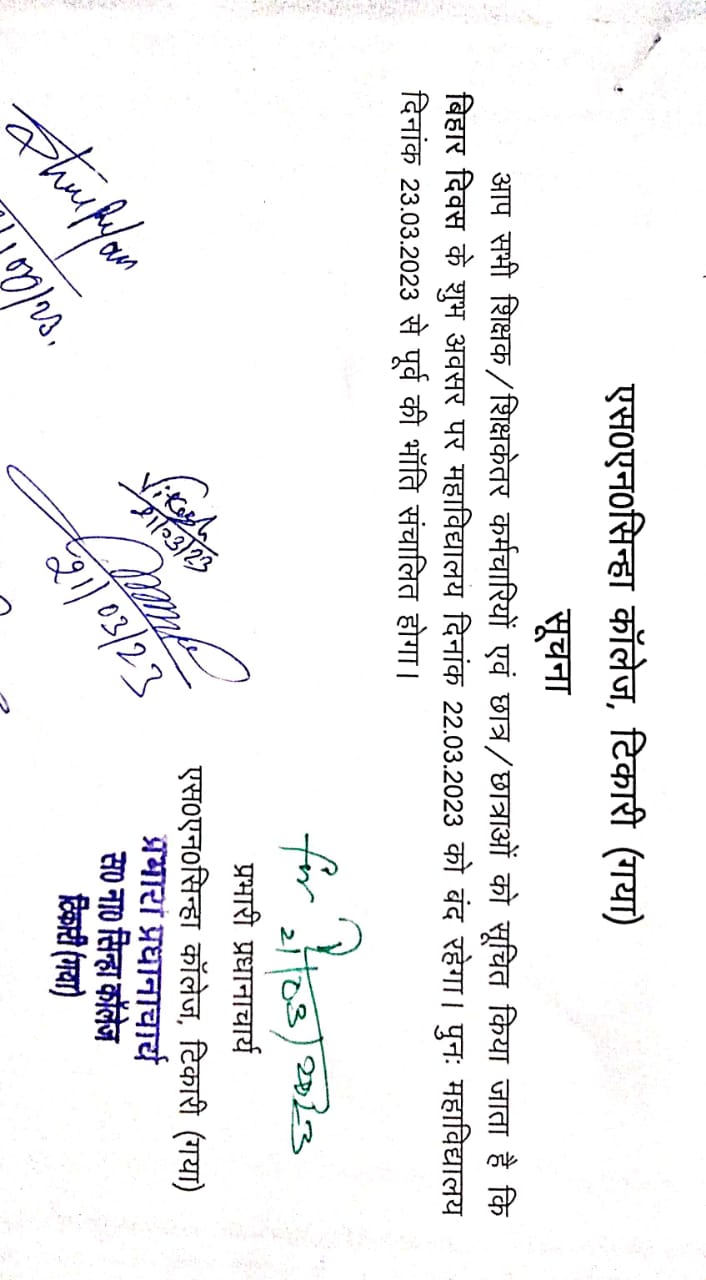 एस0एन0सिन्हा कॉलेज, टिकारी (गया)
सूचना
आप सभी शिक्षक/शिक्षकेतर कर्मचारियों एवं छात्र/छात्राओं को सूचित किया जाता है कि
बिहार दिवस के शुभ अवसर पर महाविद्यालय दिनांक 22.03.2023 को बंद रहेगा। पुनः महाविद्यालय
दिनांक 23.03.2023 से पूर्व की भॉति संचालित होगा।
21/03/2023
प्रभारी प्रधानाचार्य
एस0एन0सिन्हा कॉलेज, टिकारी (गया)
प्रभारी प्रधानाचार्य
स0 ना0 सिन्हा कॉलेज
टिकारी (गया)
Vikash
21/03/23
21/03/23